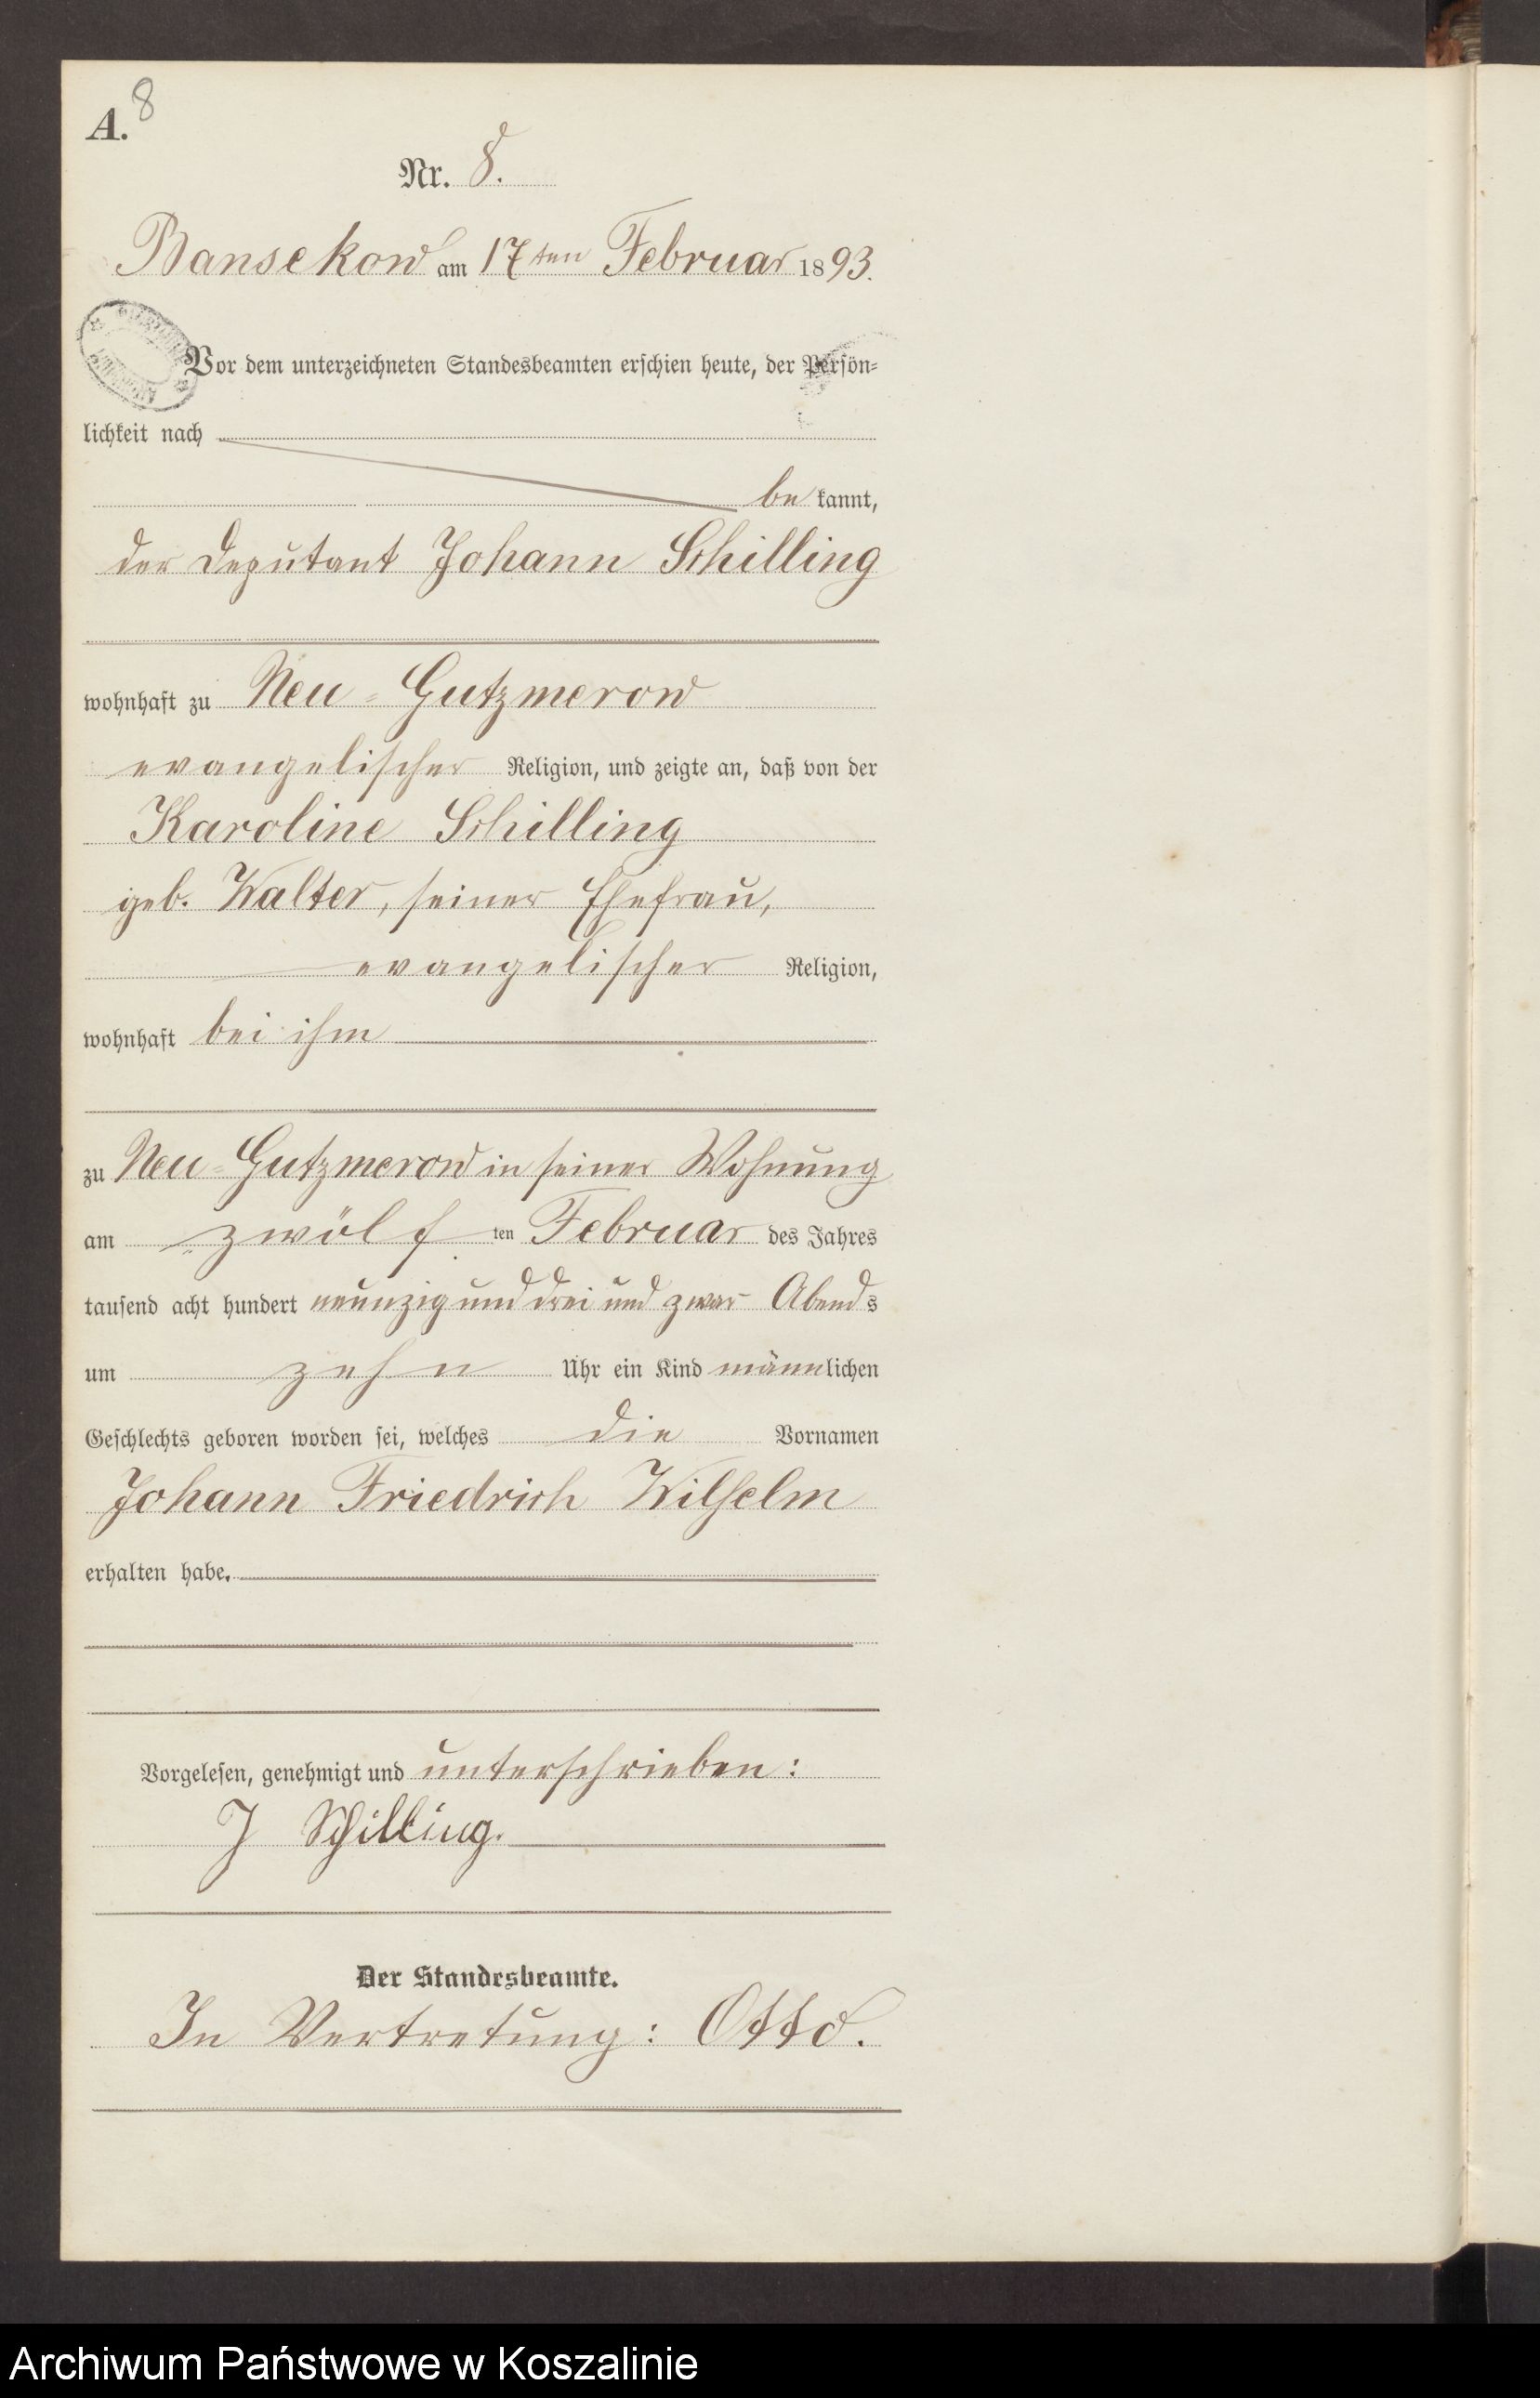 8
A.
Nr. 8.
Bansekow am 17ten Februar 1893.
Vor dem unterzeichneten Standesbeamten erschien heute, der Persön-
lichkeit nach
be kannt,
der Deputant Johann Schilling
wohnhaft zu Neu-Gutzmerow
evangelischer Religion, und zeigte an, daß von der
Karoline Schilling
geb. Walter, seiner Ehefrau,
evangelischer Religion,
wohnhaft bei ihm
zu Neu-Gutzmerow in seiner Wohnung
am zwölf ten Februar des Jahres
tausend acht hundert neunzig und drei und zwar Abends
um zehn Uhr ein Kind männlichen
Geschlechts geboren worden sei, welches die Vornamen
Johann Friedrich Wilhelm
erhalten habe.
Vorgelesen, genehmigt und unterschrieben:
J Schilling.
Der Standesbeamte.
In Vertretung: Otto.
Archiwum Państwowe w Koszalinie